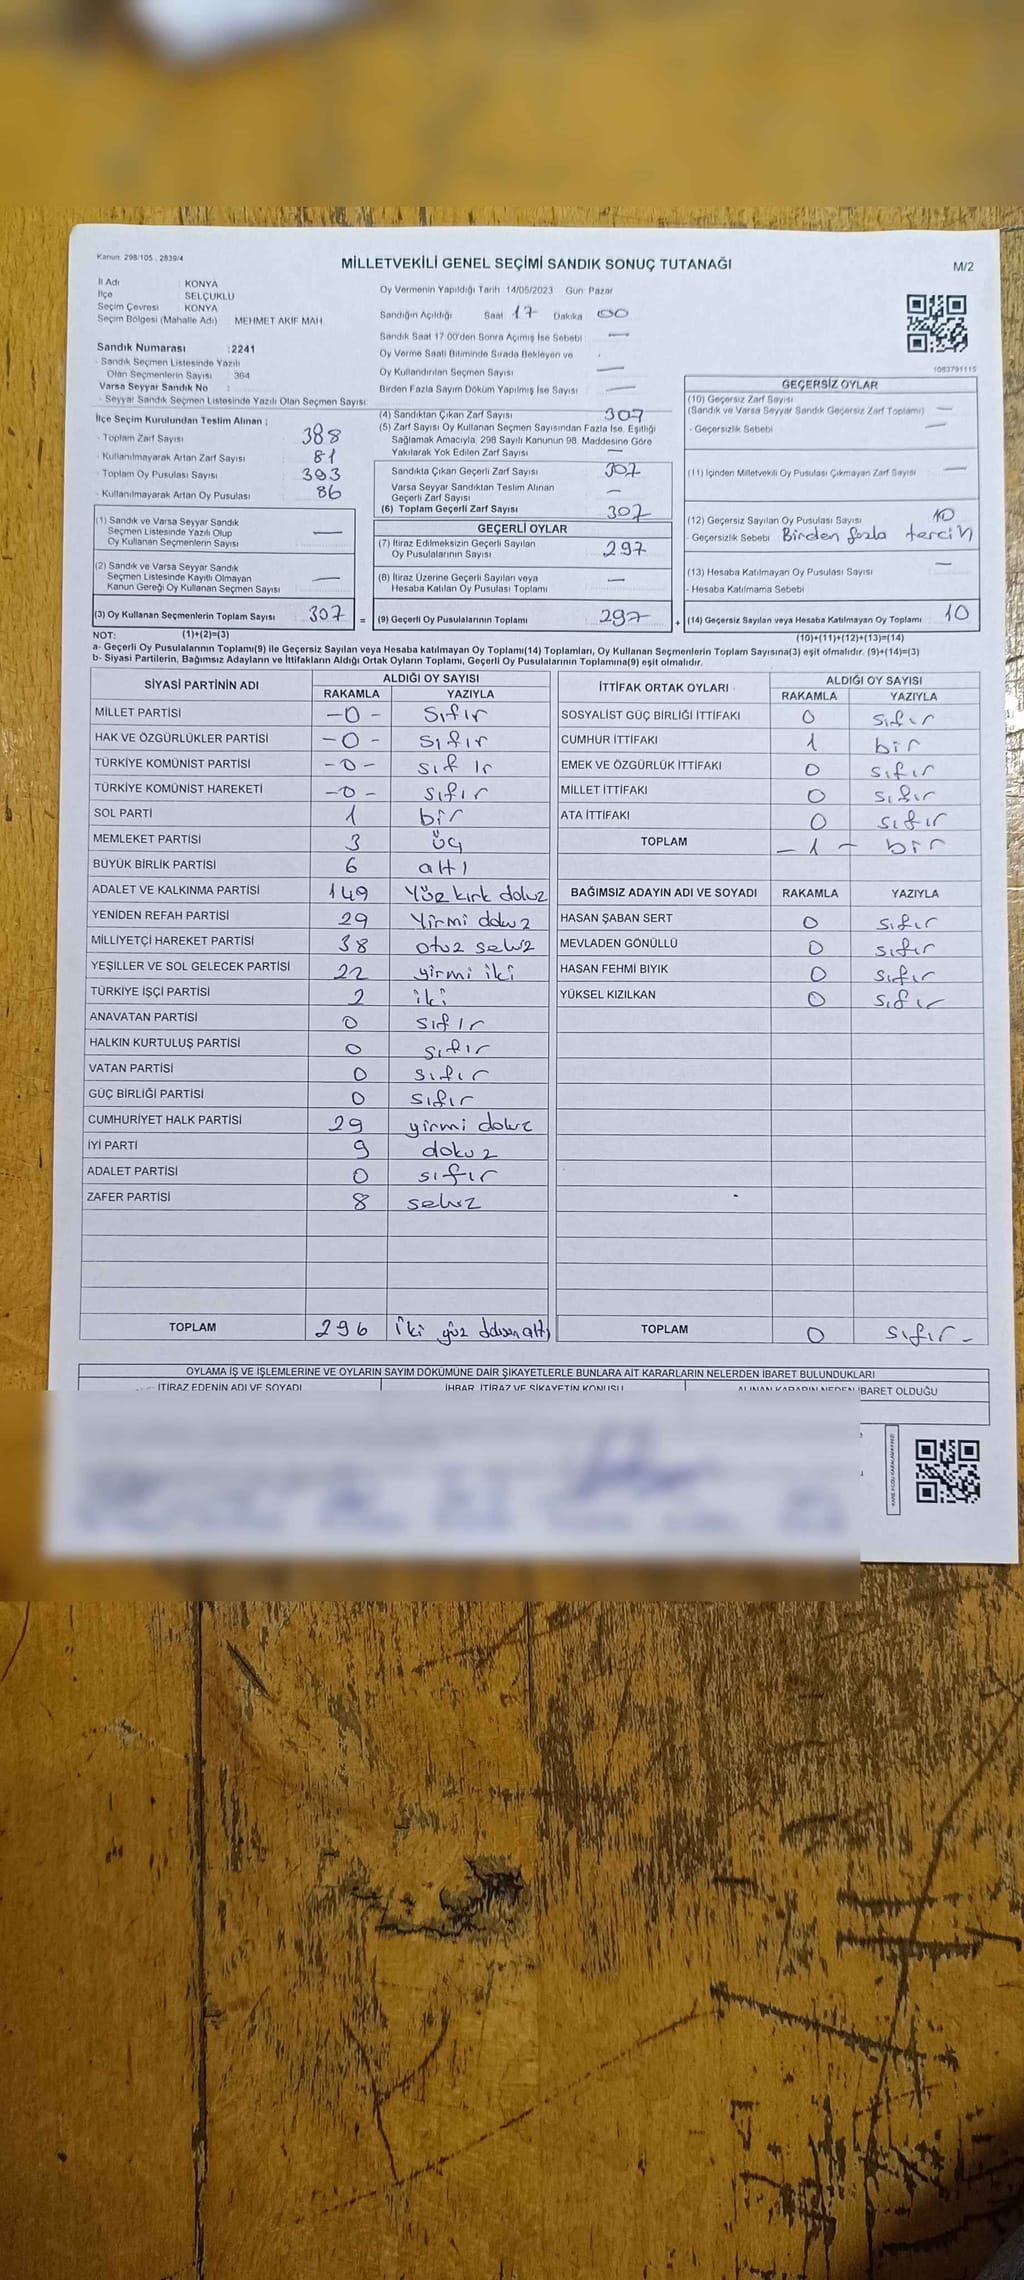 Kanun: 298/105 , 2839/4
MİLLETVEKİLİ GENEL SEÇİMİ SANDIK SONUÇ TUTANAĞI
M/2
İl Adı : KONYA
İlçe : SELÇUKLU
Seçim Çevresi : KONYA
Seçim Bölgesi (Mahalle Adı) : MEHMET AKİF MAH.
Sandık Numarası :2241
- Sandık Seçmen Listesinde Yazılı
Olan Seçmenlerin Sayısı : 364
Varsa Seyyar Sandık No :
- Seyyar Sandık Seçmen Listesinde Yazılı Olan Seçmen Sayısı:
Oy Vermenin Yapıldığı Tarih :14/05/2023 Gün: Pazar
Sandığın Açıldığı Saat 17 Dakika 00
Sandık Saat 17:00'den Sonra Açılmış İse Sebebi : —
Oy Verme Saati Bitiminde Sırada Bekleyen ve
Oy Kullandırılan Seçmen Sayısı —
Birden Fazla Sayım Döküm Yapılmış İse Sayısı —
1083791115
İlçe Seçim Kurulundan Teslim Alınan ;
- Toplam Zarf Sayısı 388
- Kullanılmayarak Artan Zarf Sayısı 81
- Toplam Oy Pusulası Sayısı 393
- Kullanılmayarak Artan Oy Pusulası 86
(1) Sandık ve Varsa Seyyar Sandık
Seçmen Listesinde Yazılı Olup
Oy Kullanan Seçmenlerin Sayısı —
(2) Sandık ve Varsa Seyyar Sandık
Seçmen Listesinde Kayıtlı Olmayan
Kanun Gereği Oy Kullanan Seçmen Sayısı —
(3) Oy Kullanan Seçmenlerin Toplam Sayısı 307 =
(4) Sandıktan Çıkan Zarf Sayısı 307
(5) Zarf Sayısı Oy Kullanan Seçmen Sayısından Fazla İse, Eşitliği
Sağlamak Amacıyla, 298 Sayılı Kanunun 98. Maddesine Göre
Yakılarak Yok Edilen Zarf Sayısı —
Sandıkta Çıkan Geçerli Zarf Sayısı 307
Varsa Seyyar Sandıktan Teslim Alınan
Geçerli Zarf Sayısı —
(6) Toplam Geçerli Zarf Sayısı 307
GEÇERLİ OYLAR
(7) İtiraz Edilmeksizin Geçerli Sayılan
Oy Pusulalarının Sayısı 297
(8) İtiraz Üzerine Geçerli Sayılan veya
Hesaba Katılan Oy Pusulası Toplamı —
(9) Geçerli Oy Pusulalarının Toplamı 297 +
GEÇERSİZ OYLAR
(10) Geçersiz Zarf Sayısı
(Sandık ve Varsa Seyyar Sandık Geçersiz Zarf Toplamı) —
- Geçersizlik Sebebi —
(11) İçinden Milletvekili Oy Pusulası Çıkmayan Zarf Sayısı —
(12) Geçersiz Sayılan Oy Pusulası Sayısı 10
- Geçersizlik Sebebi Birden fazla tercih
(13) Hesaba Katılmayan Oy Pusulası Sayısı —
- Hesaba Katılmama Sebebi
(14) Geçersiz Sayılan veya Hesaba Katılmayan Oy Toplamı 10
NOT: (1)+(2)=(3) (10)+(11)+(12)+(13)=(14)
a- Geçerli Oy Pusulalarının Toplamı(9) ile Geçersiz Sayılan veya Hesaba katılmayan Oy Toplamı(14) Toplamları, Oy Kullanan Seçmenlerin Toplam Sayısına(3) eşit olmalıdır. (9)+(14)=(3)
b- Siyasi Partilerin, Bağımsız Adayların ve İttifakların Aldığı Ortak Oyların Toplamı, Geçerli Oy Pusulalarının Toplamına(9) eşit olmalıdır.
SİYASİ PARTİNİN ADI ALDIĞI OY SAYISI
RAKAMLA YAZIYLA
MİLLET PARTİSİ -0- sıfır
HAK VE ÖZGÜRLÜKLER PARTİSİ -0- sıfır
TÜRKİYE KOMÜNİST PARTİSİ -0- sıfır
TÜRKİYE KOMÜNİST HAREKETİ -0- sıfır
SOL PARTİ 1 bir
MEMLEKET PARTİSİ 3 üç
BÜYÜK BİRLİK PARTİSİ 6 altı
ADALET VE KALKINMA PARTİSİ 149 Yüz kırk dokuz
YENİDEN REFAH PARTİSİ 29 Yirmi dokuz
MİLLİYETÇİ HAREKET PARTİSİ 38 otuz sekiz
YEŞİLLER VE SOL GELECEK PARTİSİ 22 yirmi iki
TÜRKİYE İŞÇİ PARTİSİ 2 iki
ANAVATAN PARTİSİ 0 sıfır
HALKIN KURTULUŞ PARTİSİ 0 sıfır
VATAN PARTİSİ 0 sıfır
GÜÇ BİRLİĞİ PARTİSİ 0 sıfır
CUMHURİYET HALK PARTİSİ 29 yirmi dokuz
İYİ PARTİ 9 dokuz
ADALET PARTİSİ 0 sıfır
ZAFER PARTİSİ 8 sekiz
TOPLAM 296 iki yüz doksan altı
İTTİFAK ORTAK OYLARI ALDIĞI OY SAYISI
RAKAMLA YAZIYLA
SOSYALİST GÜÇ BİRLİĞİ İTTİFAKI 0 sıfır
CUMHUR İTTİFAKI 1 bir
EMEK VE ÖZGÜRLÜK İTTİFAKI 0 sıfır
MİLLET İTTİFAKI 0 sıfır
ATA İTTİFAKI 0 sıfır
TOPLAM -1- bir
BAĞIMSIZ ADAYIN ADI VE SOYADI RAKAMLA YAZIYLA
HASAN ŞABAN SERT 0 sıfır
MEVLADEN GÖNÜLLÜ 0 sıfır
HASAN FEHMİ BIYIK 0 sıfır
YÜKSEL KIZILKAN 0 sıfır
TOPLAM 0 sıfır-
OYLAMA İŞ VE İŞLEMLERİNE VE OYLARIN SAYIM DÖKÜMÜNE DAİR ŞİKAYETLERLE BUNLARA AİT KARARLARIN NELERDEN İBARET BULUNDUKLARI
İTİRAZ EDENİN ADI VE SOYADI İHBAR, İTİRAZ VE ŞİKAYETİN KONUSU ALINAN KARARIN NEDEN İBARET OLDUĞU